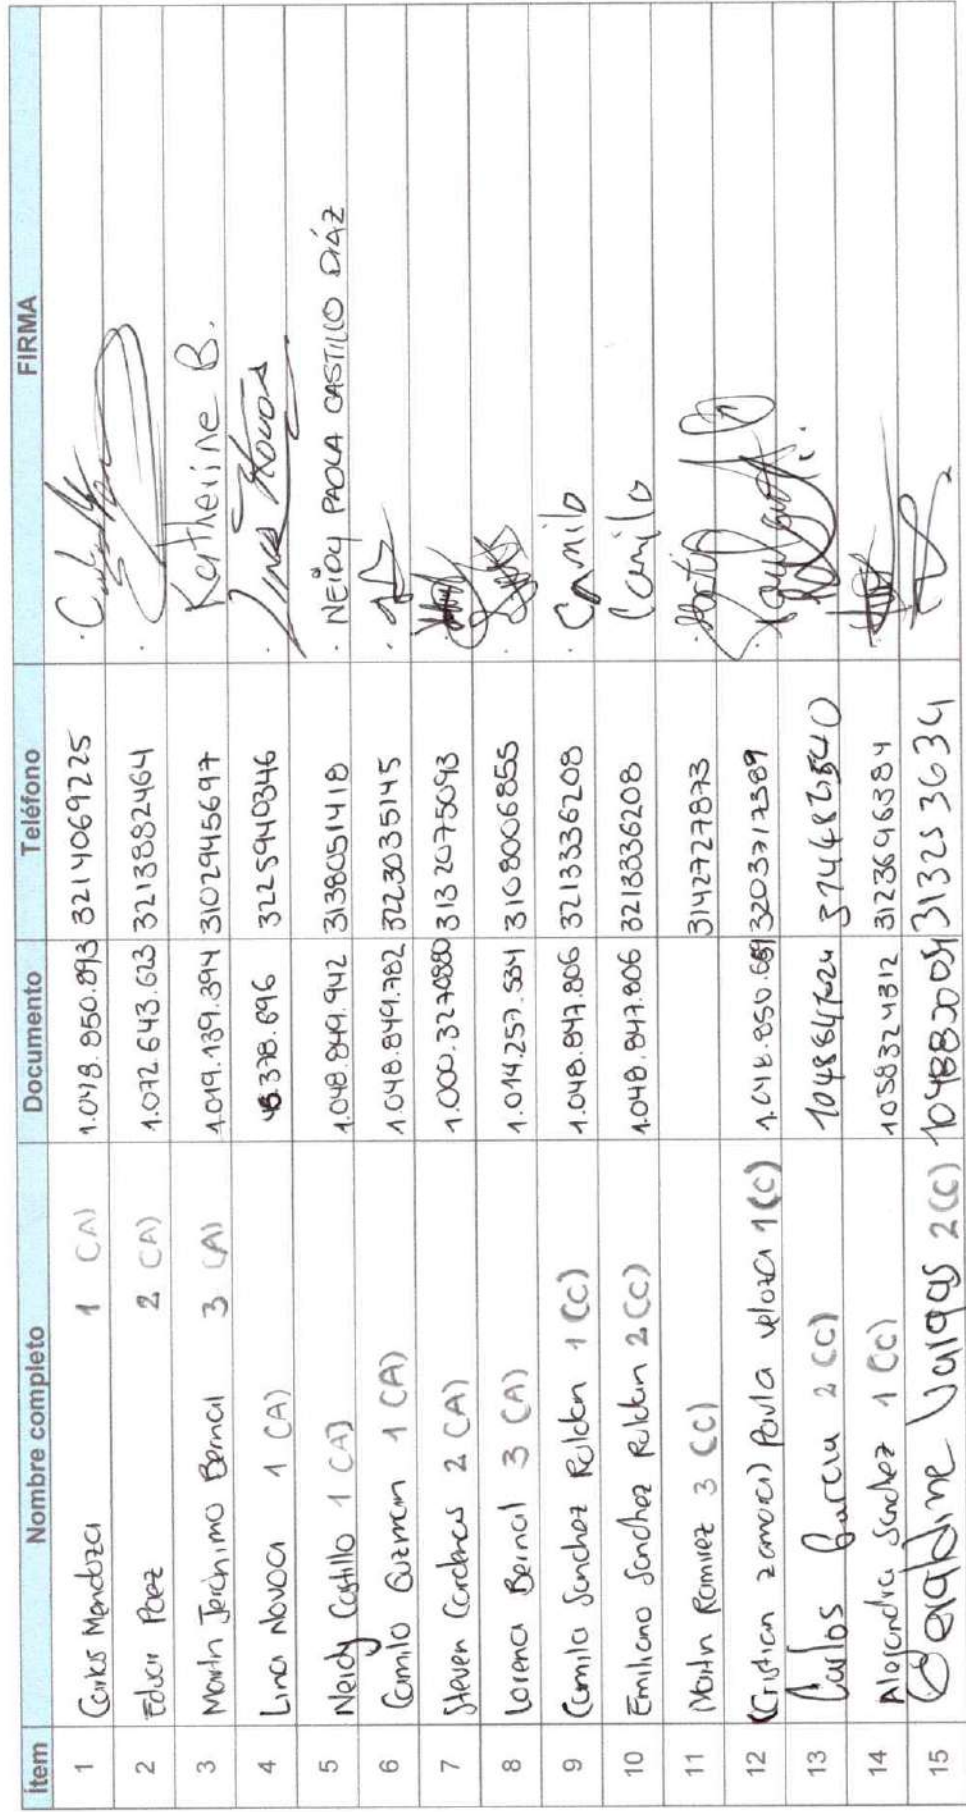 Ítem Nombre completo Documento Teléfono FIRMA
1 Carlos Mendoza 1 (A) 1.048.850.893 3214069225
2 Edwar Paez 2 (A) 1.072.643.623 3213882464
3 Martin Jeronimo Bernal 3 (A) 1.019.139.394 3102945697 Katherine B.
4 Lina Novoa 1 (A) 46.378.696 3225940346 Lina Novoa
5 Neidy Castillo 1 (A) 1.048.849.942 3138051418 NEIDY PAOLA CASTILLO DÍAZ
6 Camilo Guzman 1 (A) 1.048.849.782 3223035145
7 Steven Cardenas 2 (A) 1.000.3270880 3132075093
8 Lorena Bernal 3 (A) 1.014.257.534 3108006855
9 Camila Sanchez Roldan 1 (C) 1.048.847.806 3213336208 Camilo
10 Emiliano Sanchez Roldan 2 (C) 1.048.847.806 3213336208 Camilo
11 Martin Ramirez 3 (C) 3142727873
12 (Cristian zamora) Paula veloza 1 (C) 1.048.850.689 3203717389
13 Carlos Garcia 2 (C) 1048847624
14 Alejandra Sanchez 1 (C) 1058324312 3123696384
15 Geraldine Vargas 2 (C) 3132533634